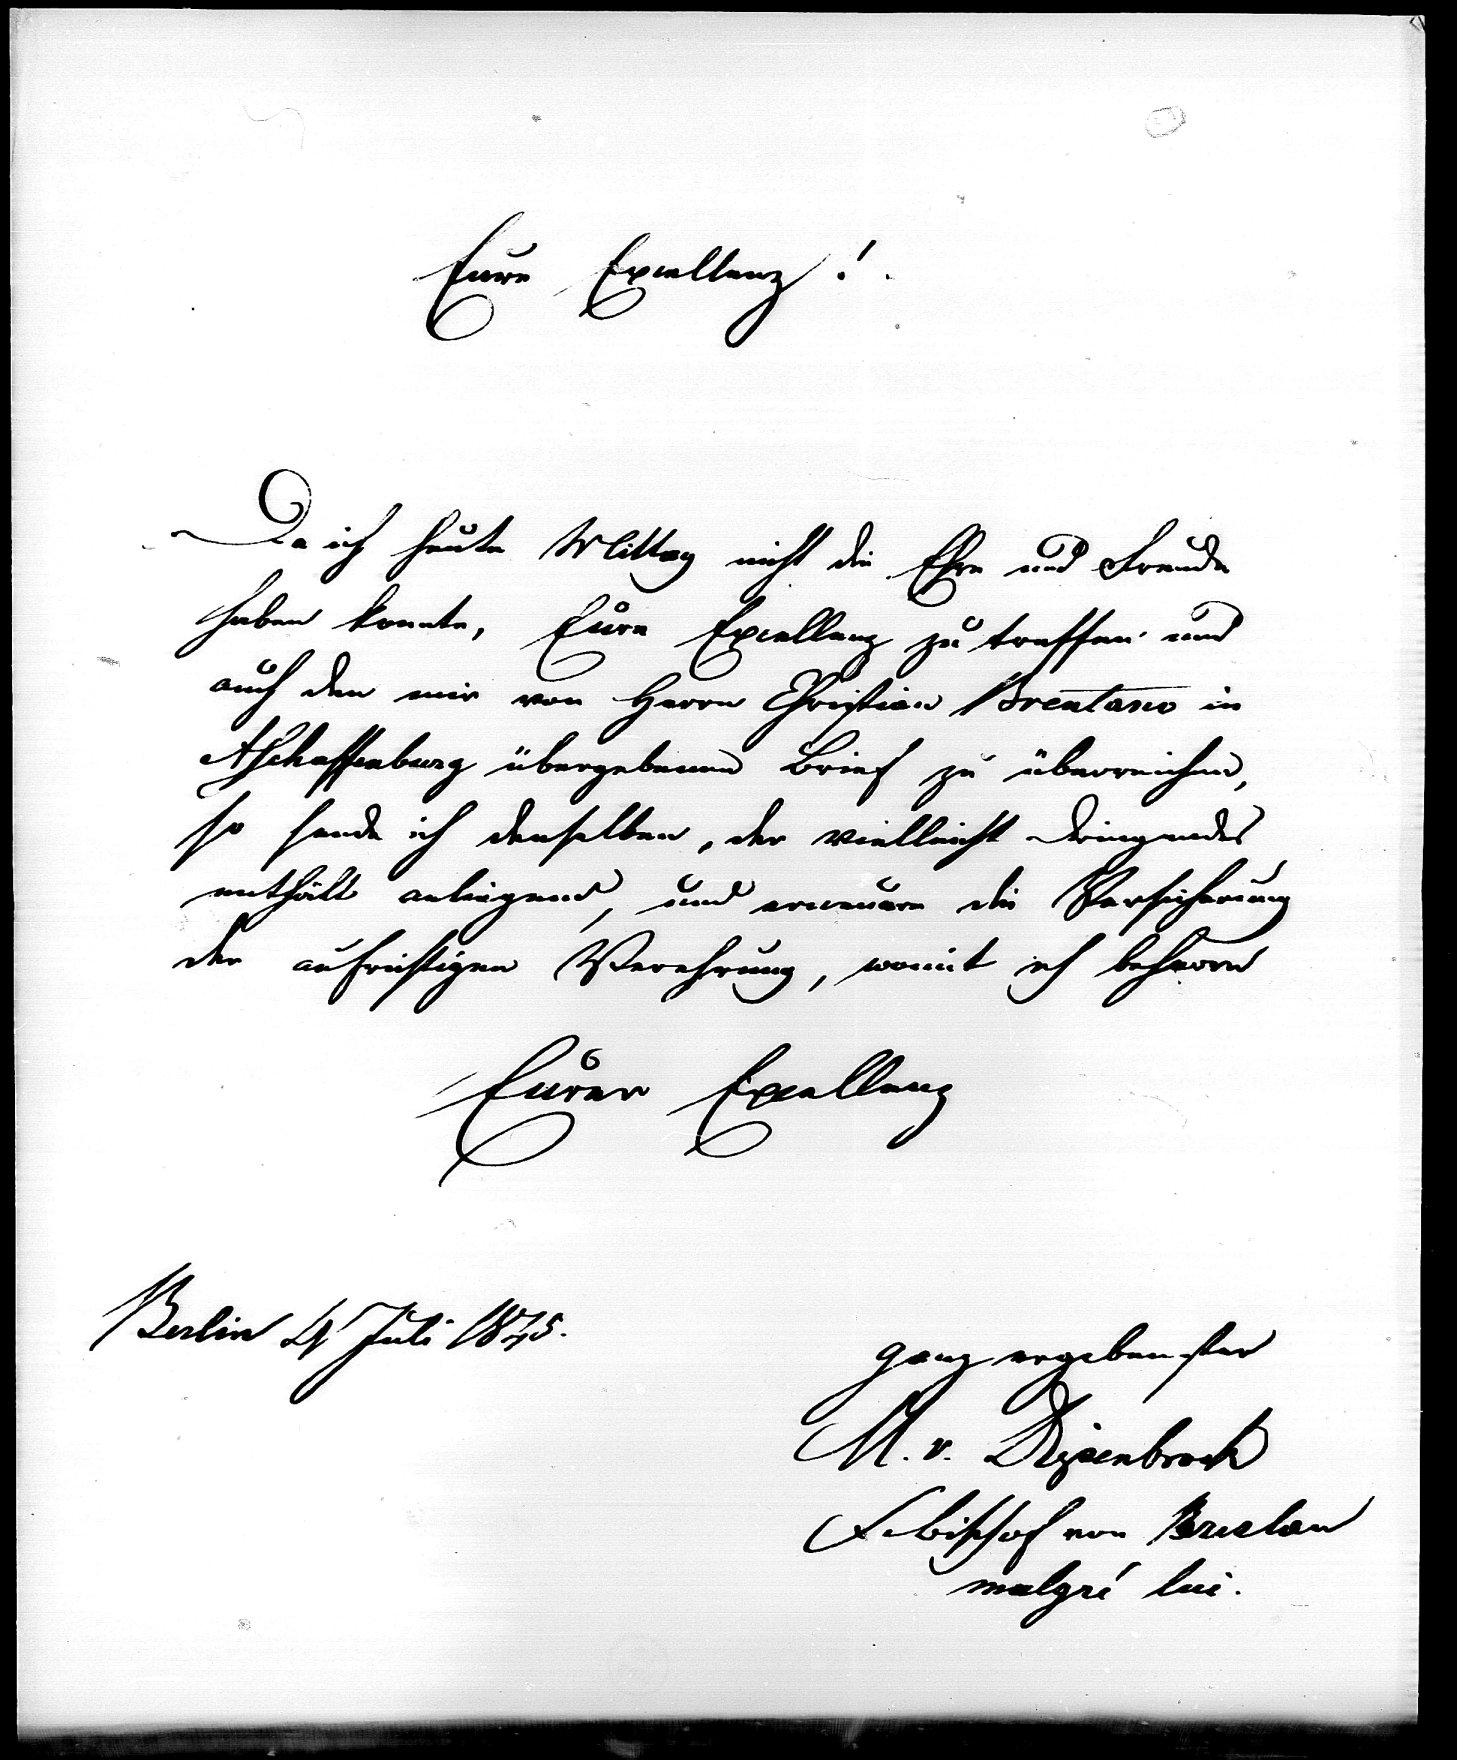 Eure Excellenz!
Da ich heute Mittag nicht die Ehre und Freude
haben konnte, Eure Excellenz zu treffen und
auch den mir von Herrn Christian Brentano in
Aschaffenburg übergebenen Brief zu überreichen,
so sende ich denselben, der vielleicht dringendes
enthält anliegend, und erneuere die Versicherung
der aufrichtigen Verehrung, womit ich beharre
Eurer Excellenz
Berlin 4 Juli 1845.
ganz ergebenster
M. v. Diepenbrock
F.bischof von Breslau
malgré lui.